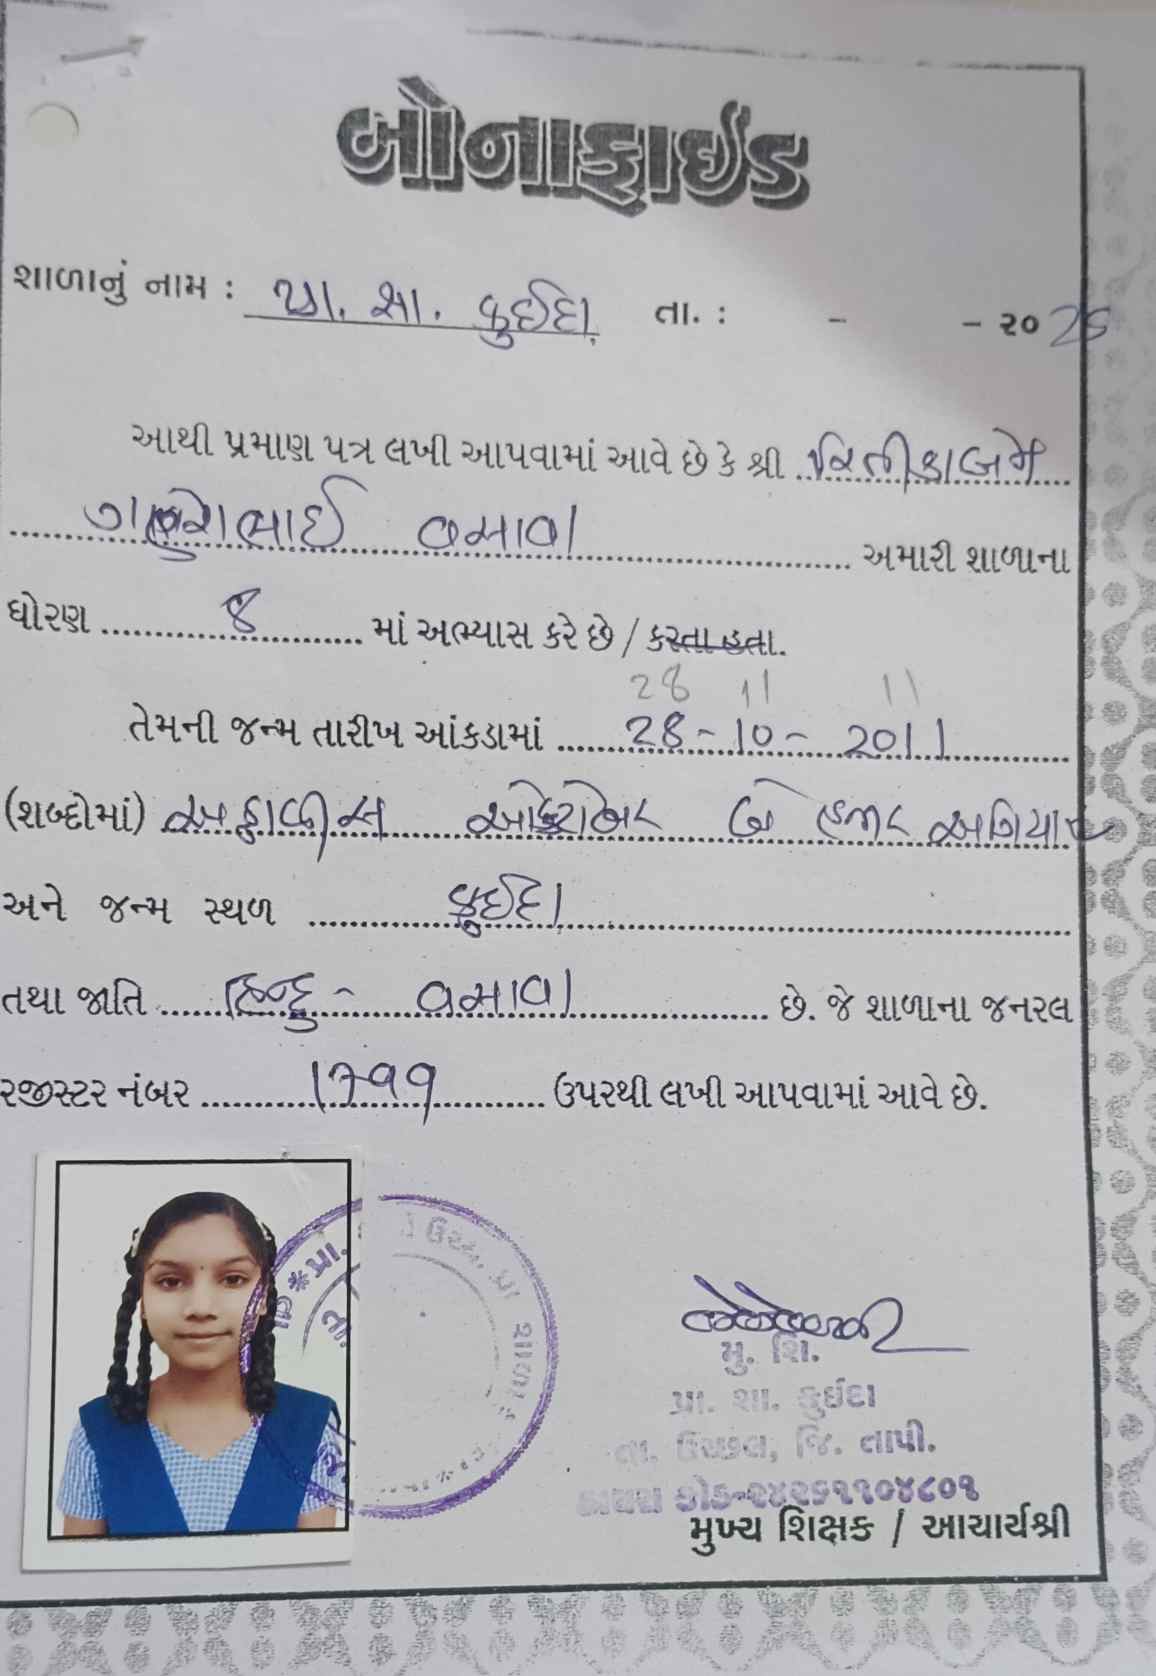 બોનાફાઈડ
શાળાનું નામ : પ્રા. શા. કુઈદા તા. : - - ૨૦25
આથી પ્રમાણ પત્ર લખી આપવામાં આવે છે કે શ્રી
વસાવા અમારી શાળાના
ધોરણ 8 માં અભ્યાસ કરે છે / કરતા હતા.
28 11 11
તેમની જન્મ તારીખ આંકડામાં 28-10-2011
(શબ્દોમાં) અઠ્ઠાવીસ ઓક્ટોબર બે હજાર અગિયાર
અને જન્મ સ્થળ કુઈદા
તથા જાતિ હિન્દુ - વસાવા છે. જે શાળાના જનરલ
રજીસ્ટર નંબર 1799 ઉપરથી લખી આપવામાં આવે છે.
મુ. શિ.
પ્રા. શા. કુઈદા
તા. ઉચ્છલ, જિ. તાપી.
મુખ્ય શિક્ષક / આચાર્યશ્રી